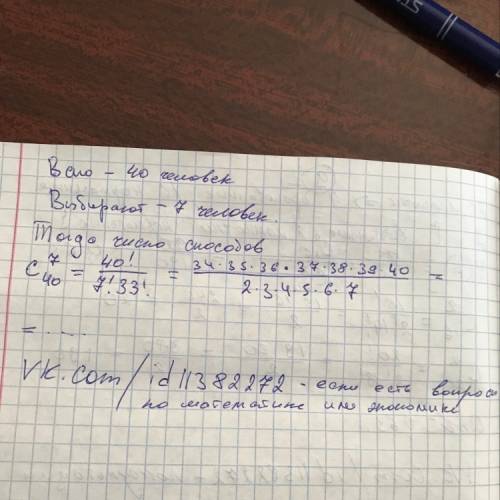 Всего – 40 человек
Выбирают – 7 человек.
Тогда число способов
C₄₀⁷ = 40! / 7! 33! = 34·35·36·37·38·39·40 / 2·3·4·5·6·7 =
= ....
vk.com/id11382272 - если есть вопросы
по математике или экономике